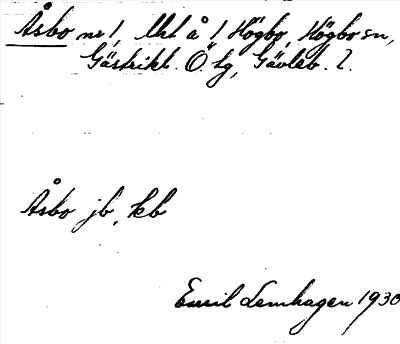 Åsbo nr 1, Utt å 1 Högbo, Högbo sn,
Gästrikl. Ö. tg, Gävleb. l.
Åsbo jb, kb
Emil Lemhagen 1930